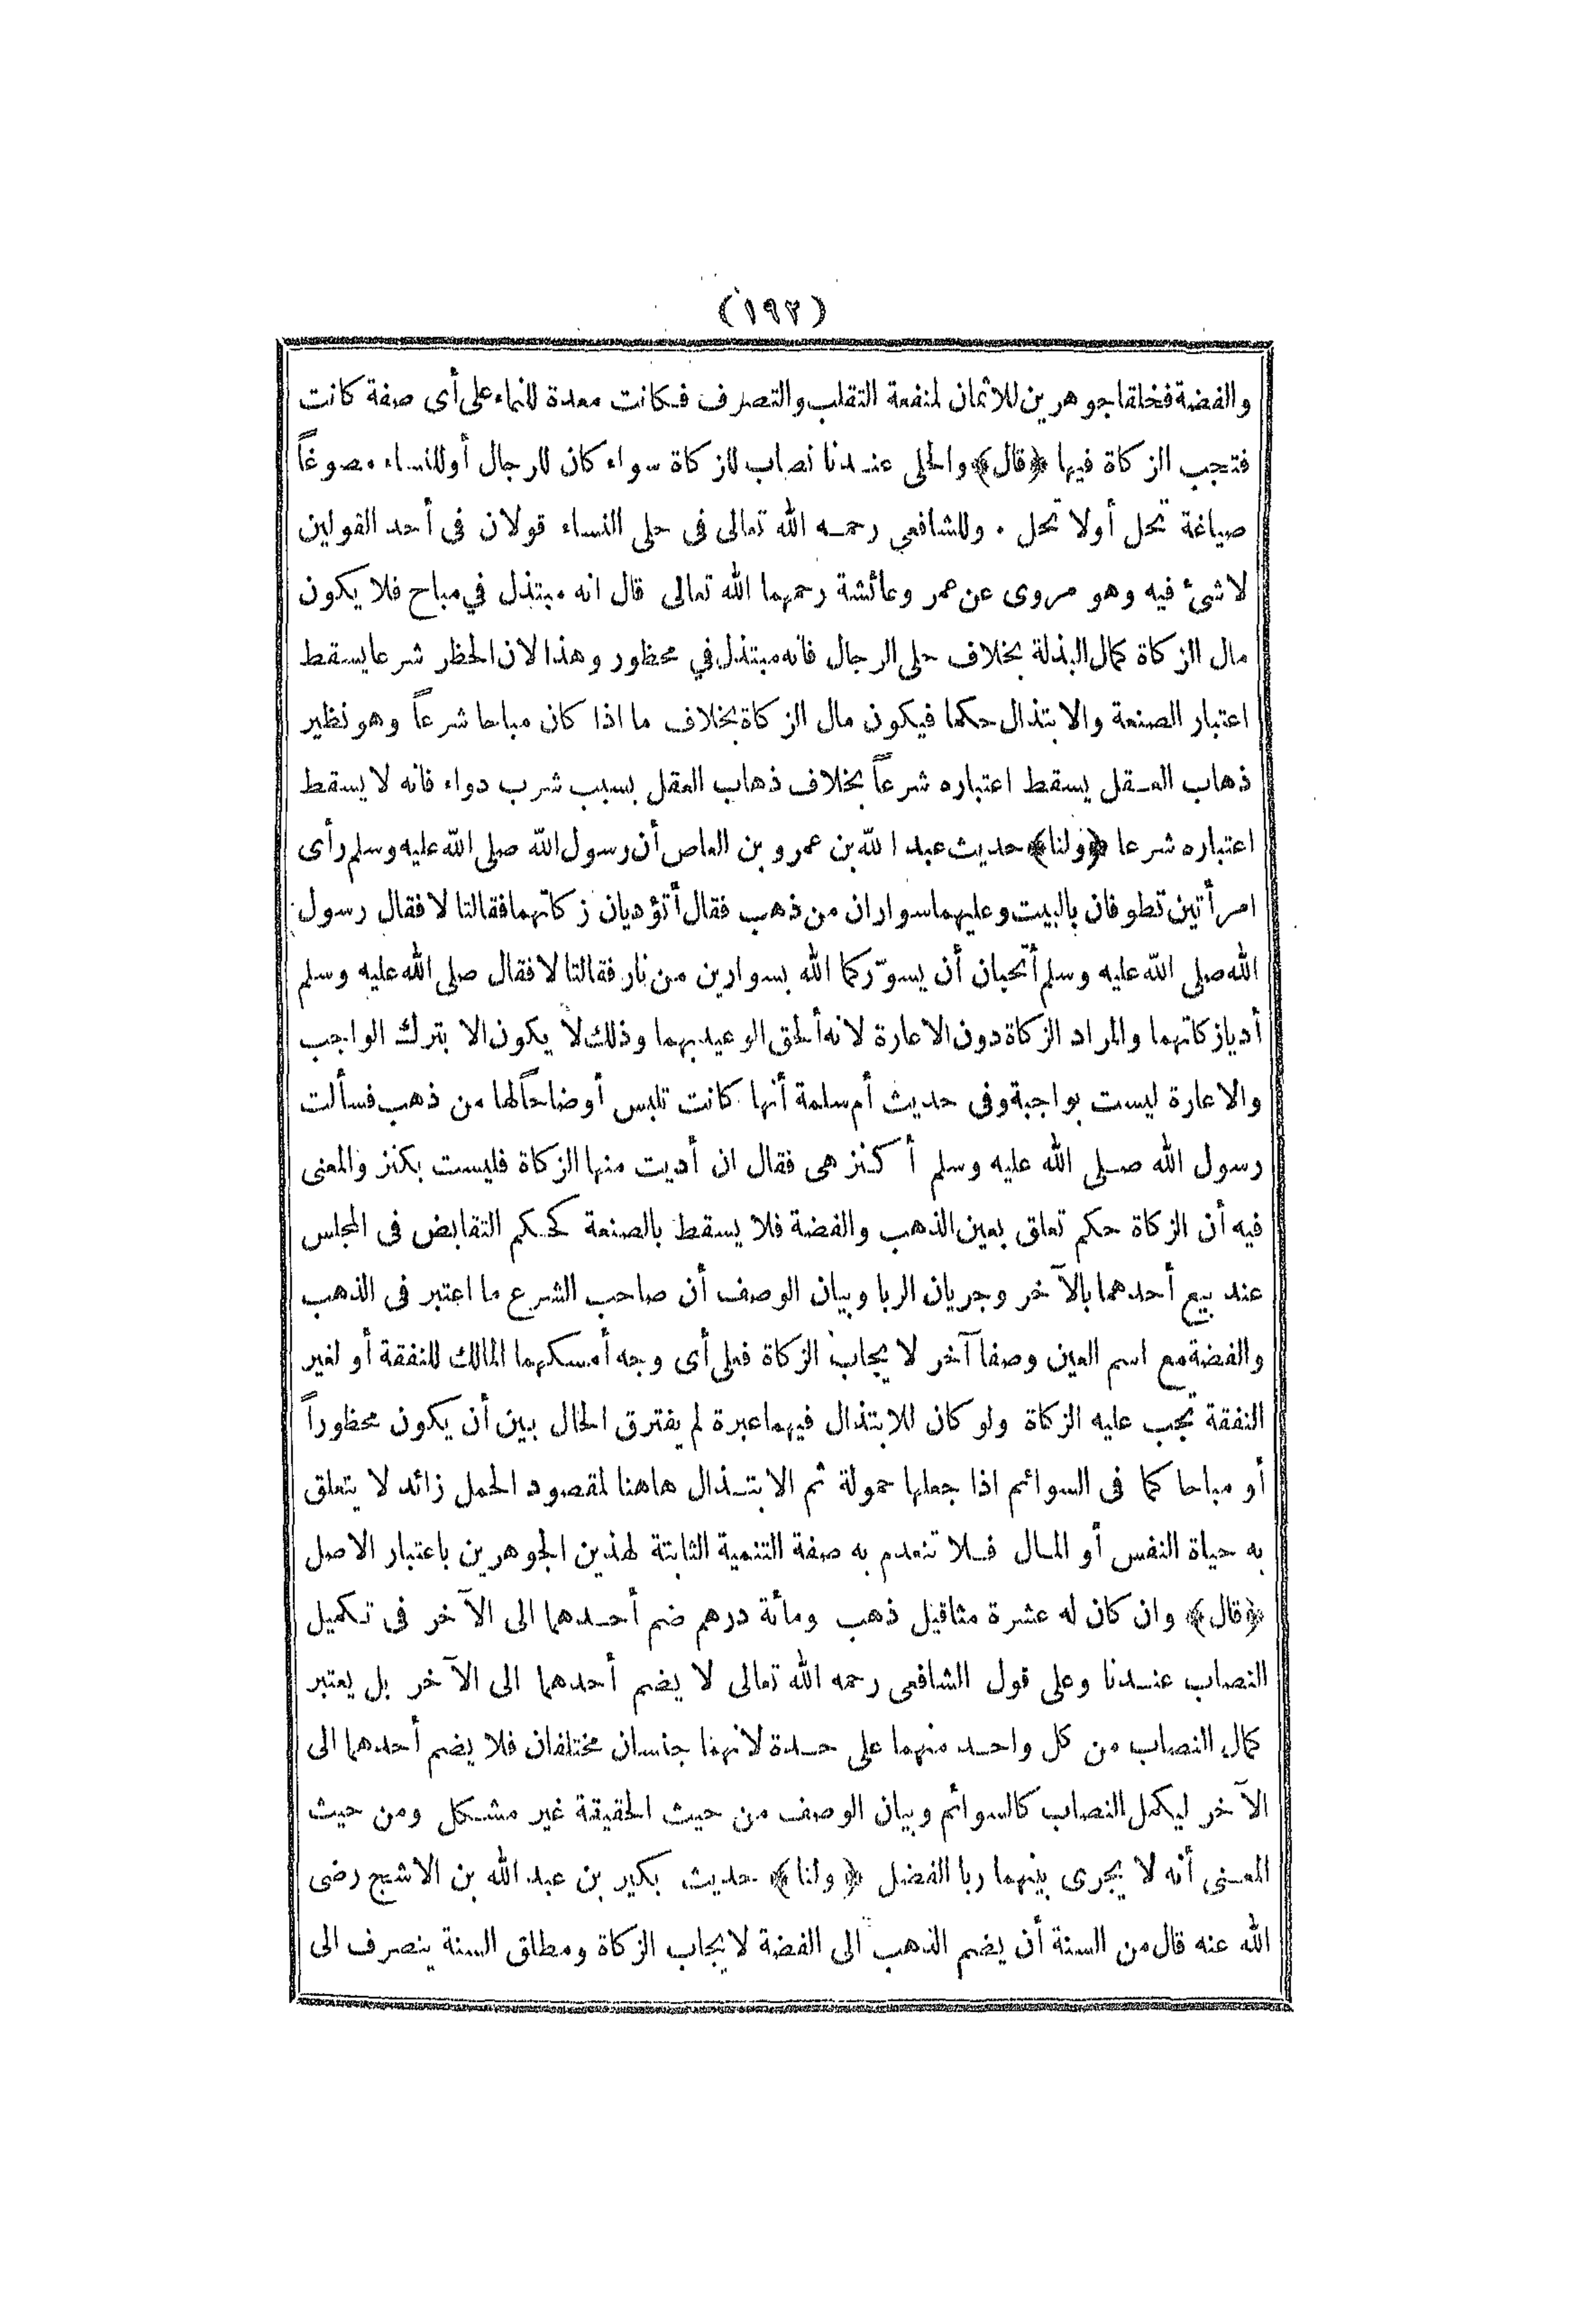 (١٩٢)
والفضة فخلقا جوهرين للاثمان لمنفعة التقلب والتصرف فكانت معدة للنماء على أى صفة كانت
فتجب الزكاة فيها ﴿قال﴾ والحلى عندنا نصاب للزكاة سواء كان للرجال أو للنساء مصوغاً
صياغة تحل أولا تحل . وللشافعى رحمه الله تعالى فى حلى النساء قولان فى أحد القولين
لا شئ فيه وهو مروى عن عمر وعائشة رحمهما الله تعالى قال انه مبتذل في مباح فلا يكون
مال الزكاة كمال البذلة بخلاف حلى الرجال فانه مبتذل في محظور وهذا لان الحظر شرعا يسقط
اعتبار الصنعة والابتذال حكما فيكون مال الزكاة بخلاف ما اذا كان مباحا شرعاً وهو نظير
ذهاب العقل يسقط اعتباره شرعاً بخلاف ذهاب العقل بسبب شرب دواء فانه لا يسقط
اعتباره شرعا ﴿ولنا﴾ حديث عبد الله بن عمرو بن العاص أن رسول الله صلى الله عليه وسلم رأى
امرأتين تطوفان بالبيت وعليهما سواران من ذهب فقال أتؤديان زكاتهما فقالتا لا فقال رسول
الله صلى الله عليه وسلم أتحبان أن يسوّركما الله بسوارين من نار فقالتا لا فقال صلى الله عليه وسلم
أديا زكاتهما والمراد الزكاة دون الاعارة لانه ألحق الوعيد بهما وذلك لا يكون الا بترك الواجب
والاعارة ليست بواجبة وفى حديث أم سلمة أنها كانت تلبس أوضاحاً لها من ذهب فسألت
رسول الله صلى الله عليه وسلم أكنز هى فقال ان أديت منها الزكاة فليست بكنز والمعنى
فيه أن الزكاة حكم تعلق بعين الذهب والفضة فلا يسقط بالصنعة كحكم التقابض فى المجلس
عند بيع أحدهما بالآخر وجريان الربا وبيان الوصف أن صاحب الشرع ما اعتبر فى الذهب
والفضة مع اسم العين وصفا آخر لايجاب الزكاة فعلى أى وجه أمسكهما المالك للنفقة أو لغير
النفقة تجب عليه الزكاة ولو كان للابتذال فيهما عبرة لم يفترق الحال بين أن يكون محظوراً
أو مباحا كما فى السوائم اذا جعلها حمولة ثم الابتذال هاهنا لمقصود الحمل زائد لا يتعلق
به حياة النفس أو المال فلا تنعدم به صفة التنمية الثابتة لهذين الجوهرين باعتبار الاصل
﴿قال﴾ وان كان له عشرة مثاقيل ذهب ومائة درهم ضم أحدهما الى الآخر فى تكميل
النصاب عندنا وعلى قول الشافعى رحمه الله تعالى لا يضم أحدهما الى الآخر بل يعتبر
كمال النصاب من كل واحد منهما على حدة لانهما جنسان مختلفان فلا يضم أحدهما الى
الآخر ليكمل النصاب كالسوائم وبيان الوصف من حيث الحقيقة غير مشكل ومن حيث
المعنى أنه لا يجرى بينهما ربا الفضل ﴿ولنا﴾ حديث بكير بن عبد الله بن الاشج رضى
الله عنه قال من السنة أن يضم الذهب الى الفضة لايجاب الزكاة ومطلق السنة ينصرف الى